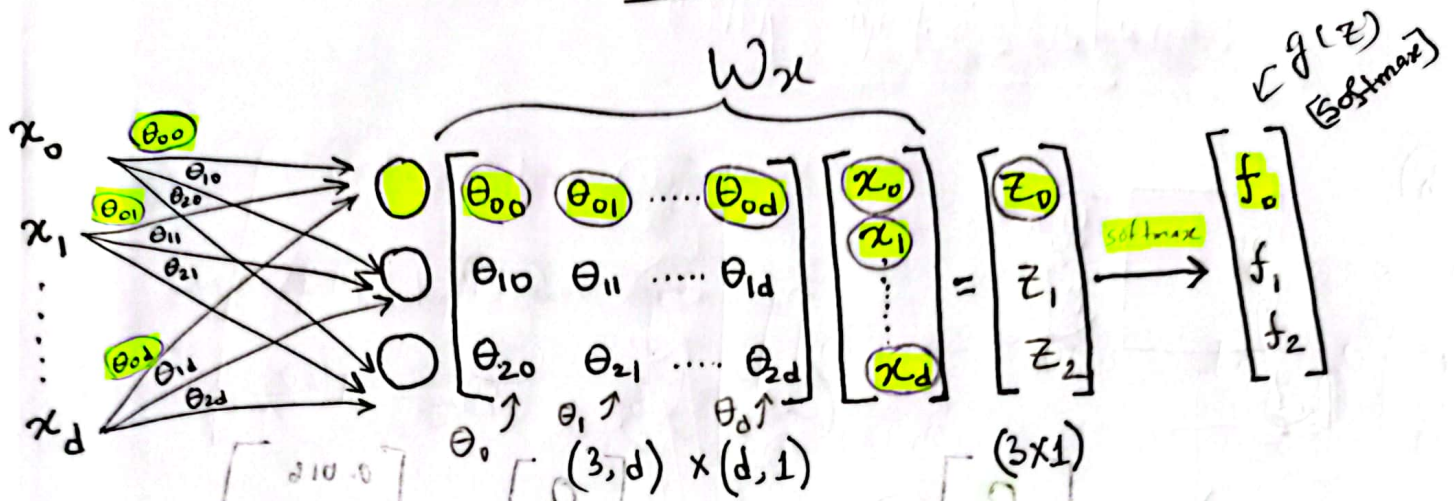 Wx
← g(z)
[Softmax]
x₀ θ₀₀ θ₁₀ θ₂₀
x₁ θ₀₁ θ₁₁ θ₂₁
x_d θ₀d θ₁d θ₂d
[θ₀₀ θ₀₁ ..... θ₀d
θ₁₀ θ₁₁ ..... θ₁d
θ₂₀ θ₂₁ ..... θ₂d]
θ₀↑ θ₁↑ θd↑
[x₀
x₁
x_d]
=
[z₀
z₁
z₂]
softmax
[f₀
f₁
f₂]
(3,d) × (d,1)
(3×1)